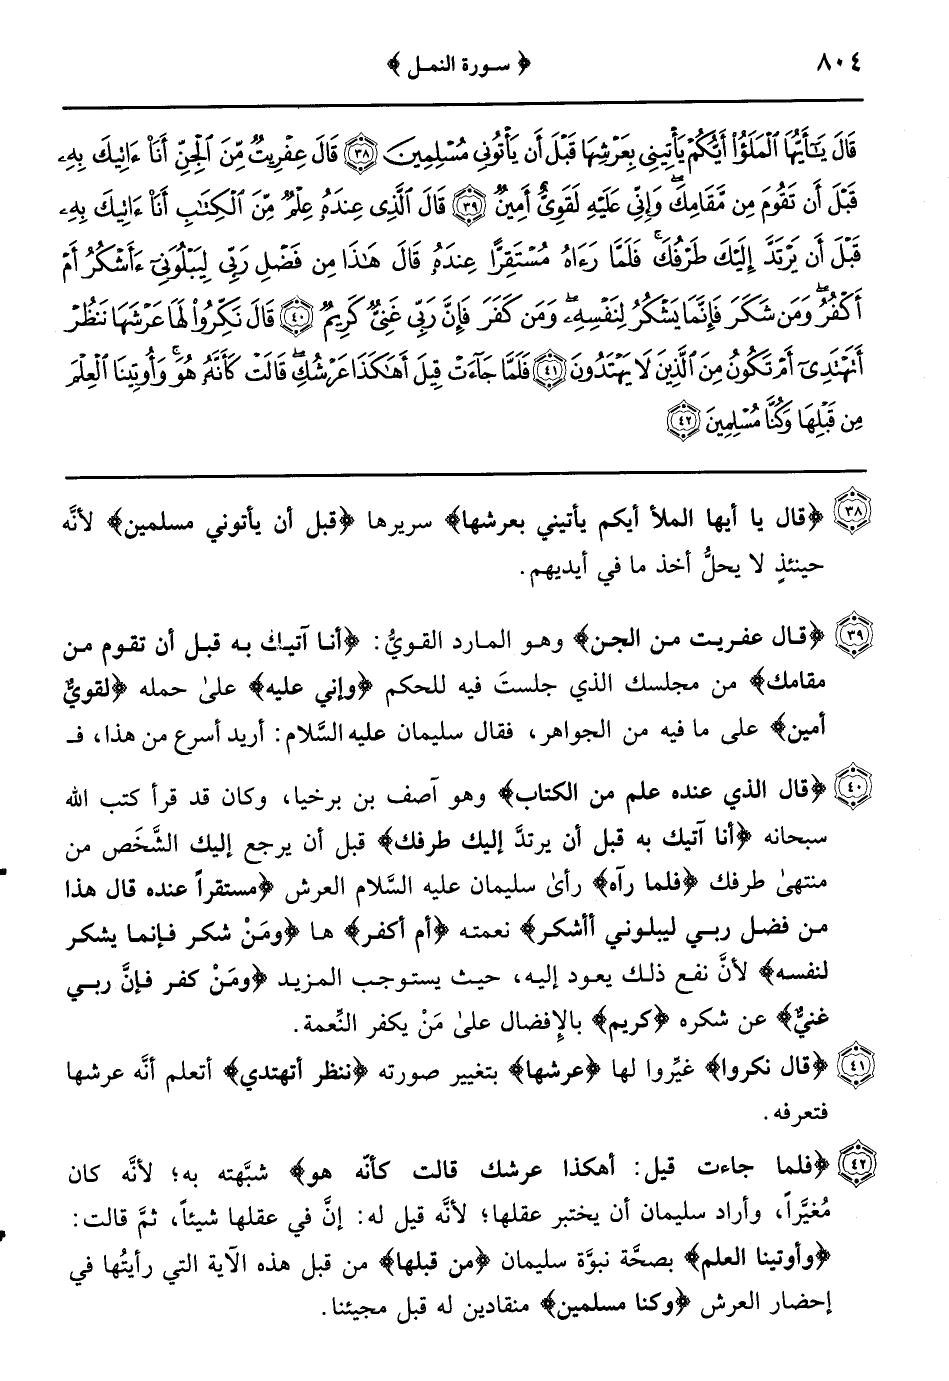 ٨٠٤
﴿ سورة النمل ﴾
قَالَ يَٰٓأَيُّهَا ٱلْمَلَؤُا۟ أَيُّكُمْ يَأْتِينِى بِعَرْشِهَا قَبْلَ أَن يَأْتُونِى مُسْلِمِينَ ٣٨ قَالَ عِفْرِيتٌ مِّنَ ٱلْجِنِّ أَنَا۠ ءَاتِيكَ بِهِۦ
قَبْلَ أَن تَقُومَ مِن مَّقَامِكَ ۖ وَإِنِّى عَلَيْهِ لَقَوِىٌّ أَمِينٌ ٣٩ قَالَ ٱلَّذِى عِندَهُۥ عِلْمٌ مِّنَ ٱلْكِتَٰبِ أَنَا۠ ءَاتِيكَ بِهِۦ
قَبْلَ أَن يَرْتَدَّ إِلَيْكَ طَرْفُكَ ۚ فَلَمَّا رَءَاهُ مُسْتَقِرًّا عِندَهُۥ قَالَ هَٰذَا مِن فَضْلِ رَبِّى لِيَبْلُوَنِىٓ ءَأَشْكُرُ أَمْ
أَكْفُرُ ۖ وَمَن شَكَرَ فَإِنَّمَا يَشْكُرُ لِنَفْسِهِۦ ۖ وَمَن كَفَرَ فَإِنَّ رَبِّى غَنِىٌّ كَرِيمٌ ٤٠ قَالَ نَكِّرُوا۟ لَهَا عَرْشَهَا نَنظُرْ
أَتَهْتَدِىٓ أَمْ تَكُونُ مِنَ ٱلَّذِينَ لَا يَهْتَدُونَ ٤١ فَلَمَّا جَآءَتْ قِيلَ أَهَٰكَذَا عَرْشُكِ ۖ قَالَتْ كَأَنَّهُۥ هُوَ ۚ وَأُوتِينَا ٱلْعِلْمَ
مِن قَبْلِهَا وَكُنَّا مُسْلِمِينَ ٤٢
٣٨ ﴿قال يا أيها الملأ أيكم يأتيني بعرشها﴾ سريرها ﴿قبل أن يأتوني مسلمين﴾ لأنَّه
حينئذٍ لا يحلُّ أخذ ما في أيديهم.
٣٩ ﴿قال عفريت من الجن﴾ وهو المارد القويُّ: ﴿أنا آتيك به قبل أن تقوم من
مقامك﴾ من مجلسك الذي جلستَ فيه للحكم ﴿وإني عليه﴾ علىٰ حمله ﴿لقويٌّ
أمين﴾ على ما فيه من الجواهر، فقال سليمان عليه السَّلام: أريد أسرع من هذا، فـ
٤٠ ﴿قال الذي عنده علم من الكتاب﴾ وهو آصف بن برخيا، وكان قد قرأ كتب الله
سبحانه ﴿أنا آتيك به قبل أن يرتدَّ إليك طرفك﴾ قبل أن يرجع إليك الشَّخَص من
منتهىٰ طرفك ﴿فلما رآه﴾ رأىٰ سليمان عليه السَّلام العرش ﴿مستقراً عنده قال هذا
من فضل ربي ليبلوني أأشكر﴾ نعمته ﴿أم أكفر﴾ ها ﴿ومَنْ شكر فإنما يشكر
لنفسه﴾ لأنَّ نفع ذلك يعود إليه، حيث يستوجب المزيد ﴿ومَنْ كفر فإنَّ ربي
غنيٌّ﴾ عن شكره ﴿كريم﴾ بالإفضال علىٰ مَنْ يكفر النِّعمة.
٤١ ﴿قال نكروا﴾ غيِّروا لها ﴿عرشها﴾ بتغيير صورته ﴿ننظر أتهتدي﴾ أتعلم أنَّه عرشها
فتعرفه.
٤٢ ﴿فلما جاءت قيل: أهكذا عرشك قالت كأنّه هو﴾ شبَّهته به؛ لأنَّه كان
مُغيَّراً، وأراد سليمان أن يختبر عقلها؛ لأنَّه قيل له: إنَّ في عقلها شيئاً، ثمَّ قالت:
﴿وأوتينا العلم﴾ بصحَّة نبوَّة سليمان ﴿من قبلها﴾ من قبل هذه الآية التي رأيتُها في
إحضار العرش ﴿وكنا مسلمين﴾ منقادين له قبل مجيئنا.